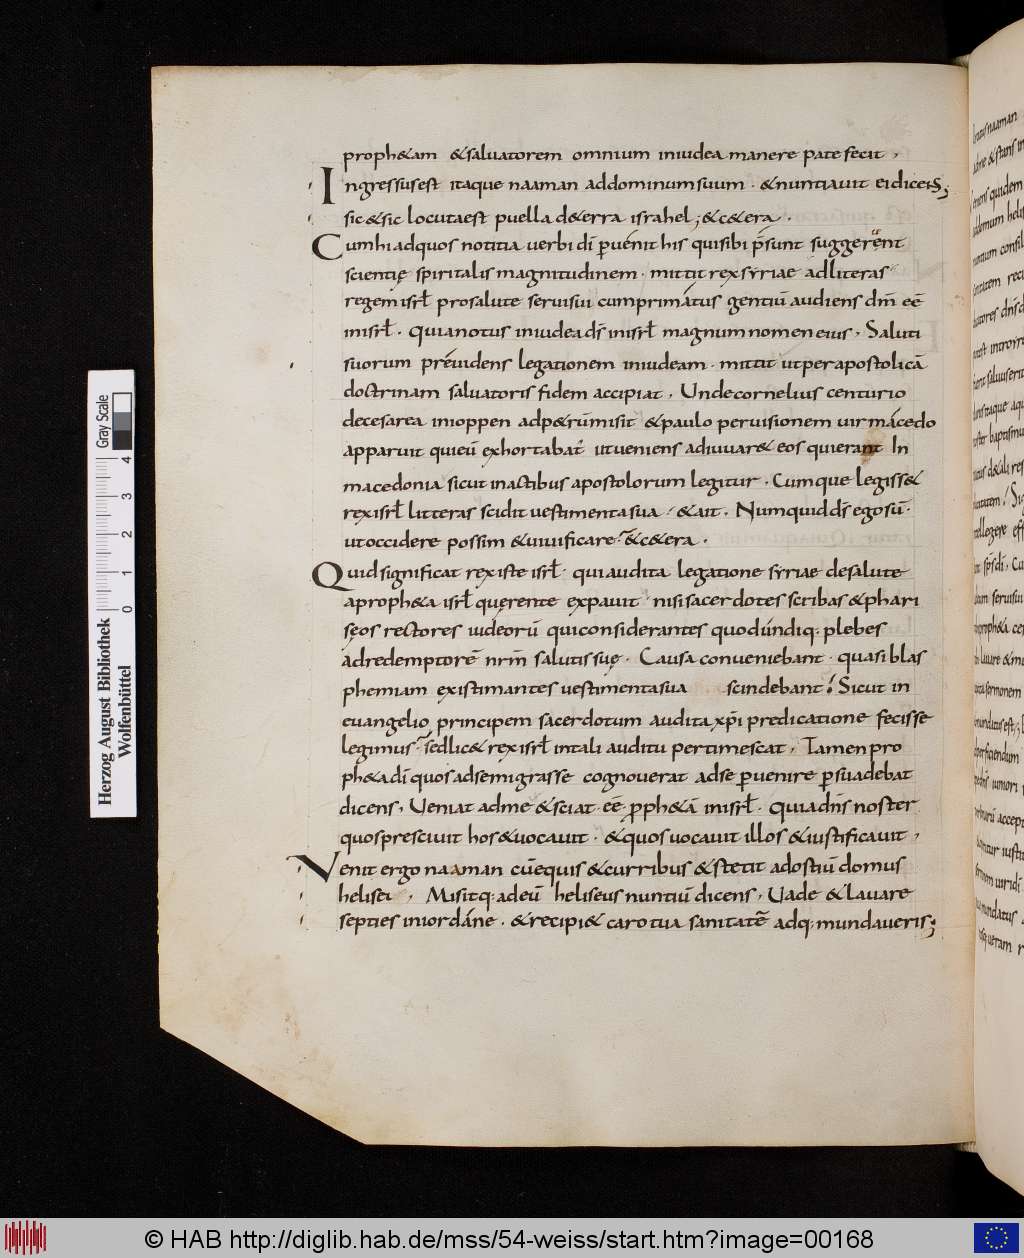 proph&am &saluatorem omnium iniudea manere patefecit,
Ingressusest itaque naaman addominumsuum · &nuntiauit eidicens;
sic&sic locutaest puella d&erra israhel; &c&era ·
Cumhiadquos notitia uerbi dī ꝑuenit his quisibi p̄sunt suggerent
scientię spiritalis magnitudinem · mittit rexsyriae adliteras
regem isrl̄ prosalute seruisui cumprimátus gentiū audiens dn̄m eē
inisrl̄ · quianotus iniudeads̄ inisrl̄ magnumnomen eius, Saluti
suorum preuidens legationem iniudeam · mittit utperapostolicā
doctrinam saluatoris fidem accipiat, Undecornelius centurio
decesarea inioppen adp&rūmisit &paulo peruisionem uirmácedo
apparuit quieū exhortabat᷑ utueniens adiuuar& eos quierant In
macedonia sicut inactibus apostolorum legitur · Cumque legiss&
rexisrl̄ litteras scidit uestimentasua · &ait · Numquidds̄ egosū ·
utoccidere possim &uiuificare · &c&era ·
Quidsignificat rex iste isrl̄ · quiaudita legatione syriae desalute
aproph&a isrl̄ querente expauit · nisisacerdotes scribas &phari
sęos rectores iudeorū quiconsiderantes quodúndiq; plebes
adredemptorē nrm̄ salutissuę · Causa conueniebant · quasi blas
phemiam existimantes uestimentasua scindebant! Sicut in
euangelio principem sacerdotum audita xp̄i predicatione fecisse
legimus · sedlic& rexisrl̄ intali auditu pertimescat, Tamen pro
ph&adī quosadsemigrasse cognouerat adse ꝑuenire ꝑsuadebat
dicens, Ueniat adme &sciat · eē ꝓph&ā inisrl̄ · quiadn̄s noster
quospresciuit hos&uocauit · &quos uocauit illos &iustificauit,
Venit ergo naaman cūequis &curribus &stetit adostiū domus
helisei, Misitq; adeū heliseus nuntiū dicens, Uade &lauare
septies iniordáne · &recipi& carotua sanitatē adq; mundaueris;
Herzog August Bibliothek
Wolfenbüttel
Gray Scale
0 1 2 3 4
© HAB http://diglib.hab.de/mss/54-weiss/start.htm?image=00168